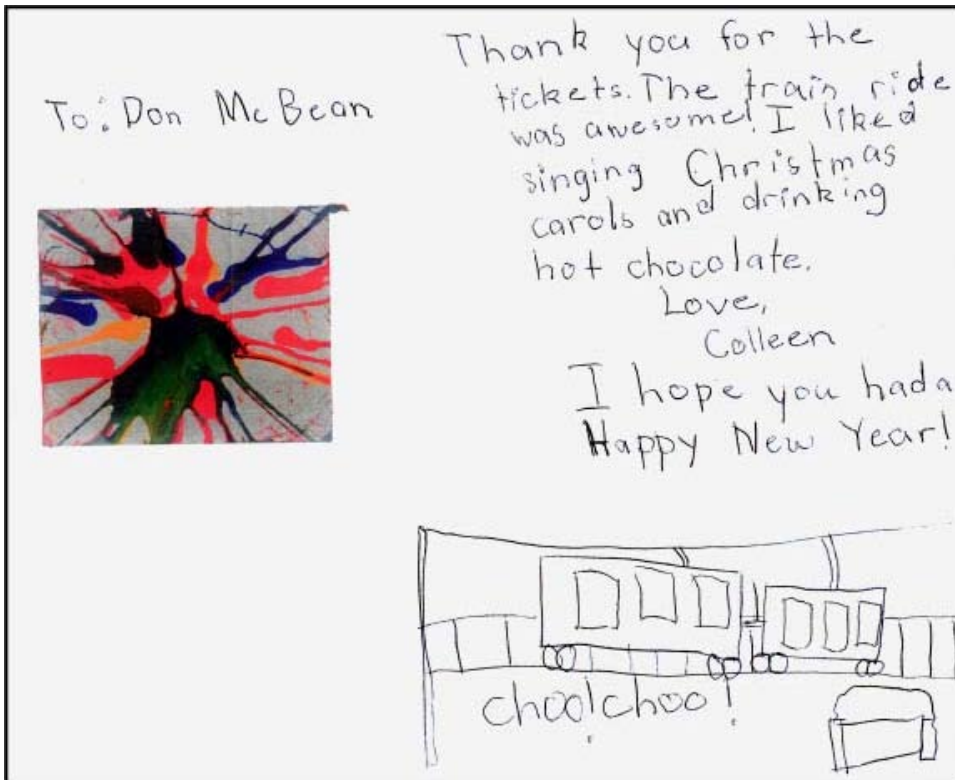 To: Don McBean
Thank you for the
tickets. The train ride
was awesome! I liked
singing Christmas
carols and drinking
hot chocolate.
Love,
Colleen
I hope you had a
Happy New Year!
choo!choo!